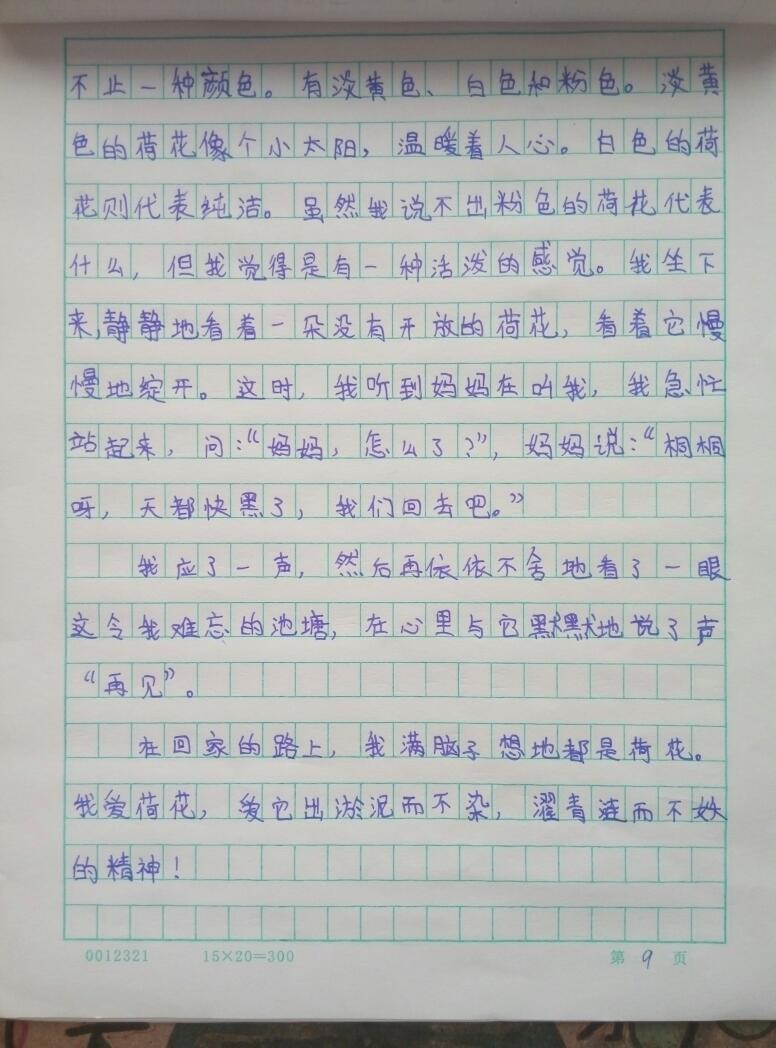 不止一种颜色。有淡黄色、白色和粉色。淡黄
色的荷花像个小太阳，温暖着人心。白色的荷
花则代表纯洁。虽然我说不出粉色的荷花代表
什么，但我觉得是有一种活泼的感觉。我坐下
来,静静地看着一朵没有开放的荷花，看着它慢
慢地绽开。这时，我听到妈妈在叫我，我急忙
站起来，问：“妈妈，怎么了？”，妈妈说：“桐桐
呀，天都快黑了，我们回去吧。”
我应了一声，然后再依依不舍地看了一眼
这令我难忘的池塘，在心里与它默默地说了声
“再见”。
在回家的路上，我满脑子想地都是荷花。
我爱荷花，爱它出淤泥而不染，濯青涟而不妖
的精神！
0012321 15×20=300 第 9 页